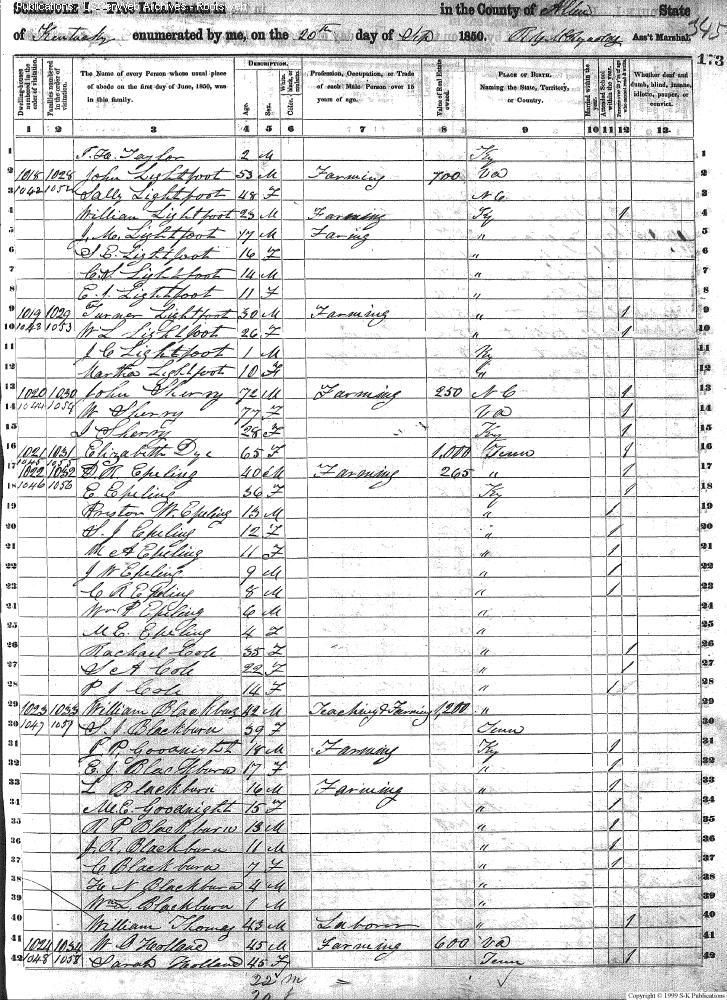 in the County of Allen State 345
of Kentucky enumerated by me, on the 20th day of Sep 1850. Ass't Marshal. 173
Dwelling-houses numbered in the order of visitation.
Families numbered in the order of visitation.
The Name of every Person whose usual place of abode on the first day of June, 1850, was in this family.
DESCRIPTION.
Age.
Sex.
Color.
Profession, Occupation, or Trade of each Male Person over 15 years of age.
Value of Real Estate owned.
PLACE OF BIRTH.
Naming the State, Territory, or Country.
Married within the year.
Attended School within the year.
Whether deaf and dumb, blind, insane, idiotic, pauper, or convict.
1 2 3 4 5 6 7 8 9 10 11 12 13
1 T. H. Taylor 2 M Ky 1
2 1018 1028 John Lightfoot 53 M Farming 700 Va 2
3 1042 1052 Sally Lightfoot 48 F N C 3
4 William Lightfoot 23 M Farming Ky 1 4
5 J. M. Lightfoot 17 M Faring " 5
6 S E. Lightfoot 16 F " 6
7 C S Lightfoot 14 M " 7
8 E. J. Lightfoot 11 F " 8
9 1019 1029 Turner Lightfoot 30 M Farming " 1 9
10 1043 1053 W L Lightfoot 26 F " 1 10
11 J C Lightfoot 1 M Ky 11
12 Martha Lightfoot 10 " 12
13 1020 1030 John Sherry 72 M Farming 250 N C 1 13
14 1044 1054 W Sherry 77 F Va 1 14
15 J Sherry 28 F Ky 1 15
16 1021 1031 Elizabeth Dye 65 F 1,000 Tenn 1 16
17 1045 1055 1022 1032 D. R Epeling 40 M Farming 265 " 1 17
18 1046 1056 E Epeling 36 F Ky 1 18
19 Preston W. Epeling 13 M " 1 19
20 S. J Epeling 12 F " 1 20
21 M A Epeling 11 F " 1 21
22 J W Epeling 9 M " 1 22
23 C R Epeling 8 M " 1 23
24 Wm P Epeling 6 M " 24
25 M. E. Epeling 4 F " 25
26 Rachael Cole 35 F " 1 26
27 S A Cole 22 F " 1 27
28 P J Cole 14 F " 1 28
29 1023 1033 William Blackburn 42 M Teaching & Farming 1,200 " 29
30 1047 1057 S. J Blackburn 39 F Tenn 30
31 P. Goodnight 18 M Farming Ky 1 31
32 E. J. Blackburn 17 F " 1 32
33 L Blackburn 16 M Farming " 1 33
34 M. E. Goodnight 15 F " 1 34
35 R P Blackburn 13 M " 1 35
36 J. R. Blackburn 11 M " 1 36
37 C Blackburn 7 F " 1 37
38 H N Blackburn 4 M " 38
39 Wm Blackburn 1 M " 39
40 William Thomas 43 M Laborer " 1 40
41 1024 1034 W Holland 45 M Farming 600 Va 41
42 1048 1058 Sarah Holland 45 F Tenn 1 42
22 M =
20 F
Copyright © 1999 S-K Publications